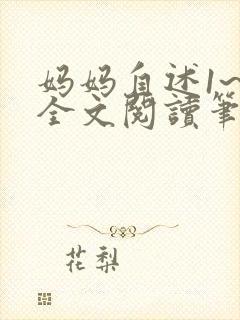 妈妈自述1~
全文閱讀筆
花梨